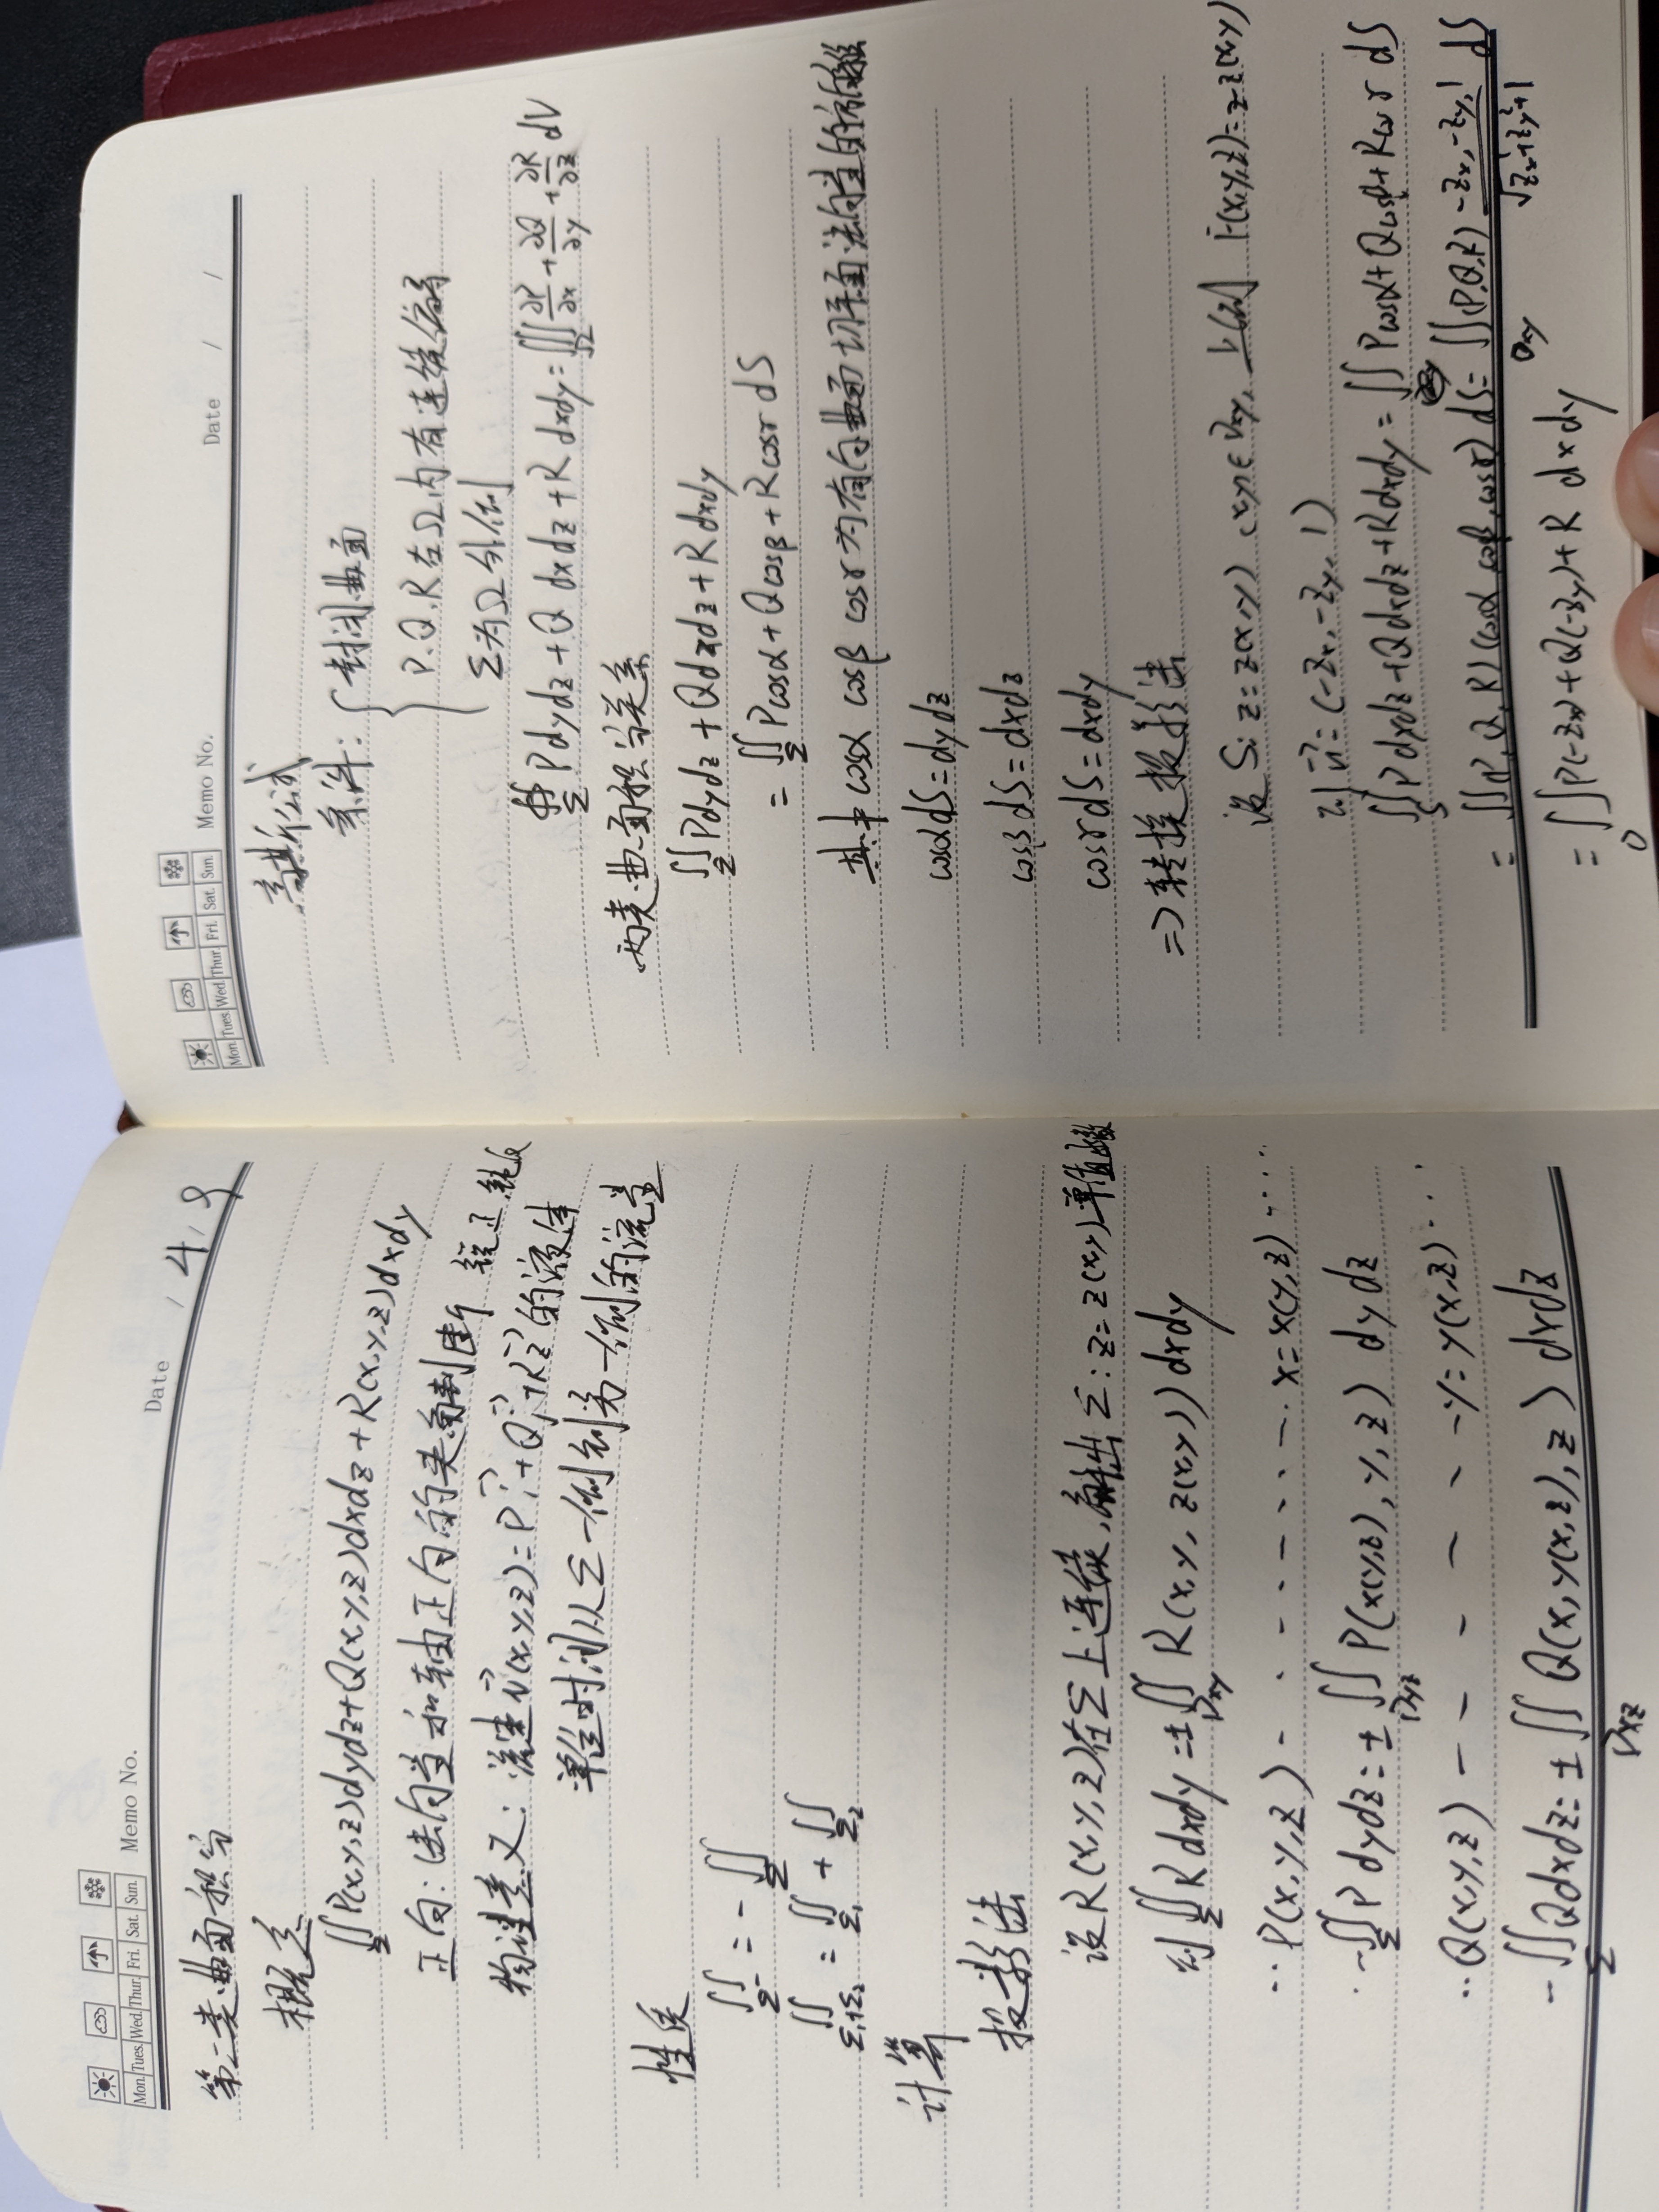 Mon. Tues. Wed. Thur. Fri. Sat. Sun.
Memo No.
Date / 4/9
第二类曲面积分
概念
∬_Σ P(x,y,z)dydz+Q(x,y,z)dxdz+R(x,y,z)dxdy
正向：法向量和轴正向的夹角判断 锐正钝反
物理意义：流速v⃗(x,y,z)=Pi⃗+Qj⃗+Rz⃗的液体
单位时间从Σ一侧到另一侧的流量
性质
∬_Σ⁻ = -∬_Σ
∬_Σ₁+Σ₂ = ∬_Σ₁ + ∬_Σ₂
计算
投影法
设R(x,y,z)在Σ上连续，解出Σ：z=z(x,y)单值函数
则∬_Σ R dxdy = ±∬_Dxy R(x,y,z(x,y))dxdy
··P(x,y,z)- - - - - - - x=x(y,z)····
·-∬_Σ P dydz = ±∬_Dyz P(x(y,z),y,z) dydz
··Q(x,y,z) - - - - - - y=y(x,z)···
-∬_Σ Qdxdz = ±∬_Dxz Q(x,y(x,z),z) dxdz
Mon. Tues. Wed. Thur. Fri. Sat. Sun.
Memo No.
Date / /
高斯公式
条件：{封闭曲面
{P.Q.R在Ω内有连续偏导
Σ为Ω外侧
∯_Σ Pdydz+Q dxdz+R dxdy=∭_Ω ∂P/∂x+∂Q/∂y+∂R/∂z dV
两类曲面积分关系
∬_Σ Pdydz+Qdxdz+Rdxdy
=∬_Σ Pcosα+Qcosβ+Rcosr dS
其中cosα cosβ cosr为有向曲面切平面法向量的方向余弦
cosαdS=dydz
cosβdS=dxdz
cosrdS=dxdy
⇒转换投影法
设S:z=z(x,y) (x,y)∈Dxy,上侧 F(x,y,z)=z-z(x,y)
则n⃗=(-Zx,-Zy,1)
∬_S Pdydz+Qdxdz+Rdxdy=∬Pcosα+Qcosβ+Rcosr dS
=∬(P,Q,R)(cosα cosβ,cosr)dS=∬_Dxy (P,Q,R) -Zx,-Zy,1/√Zx²+Zy²+1 dS
=∬_D P(-Zx)+Q(-Zy)+R dxdy